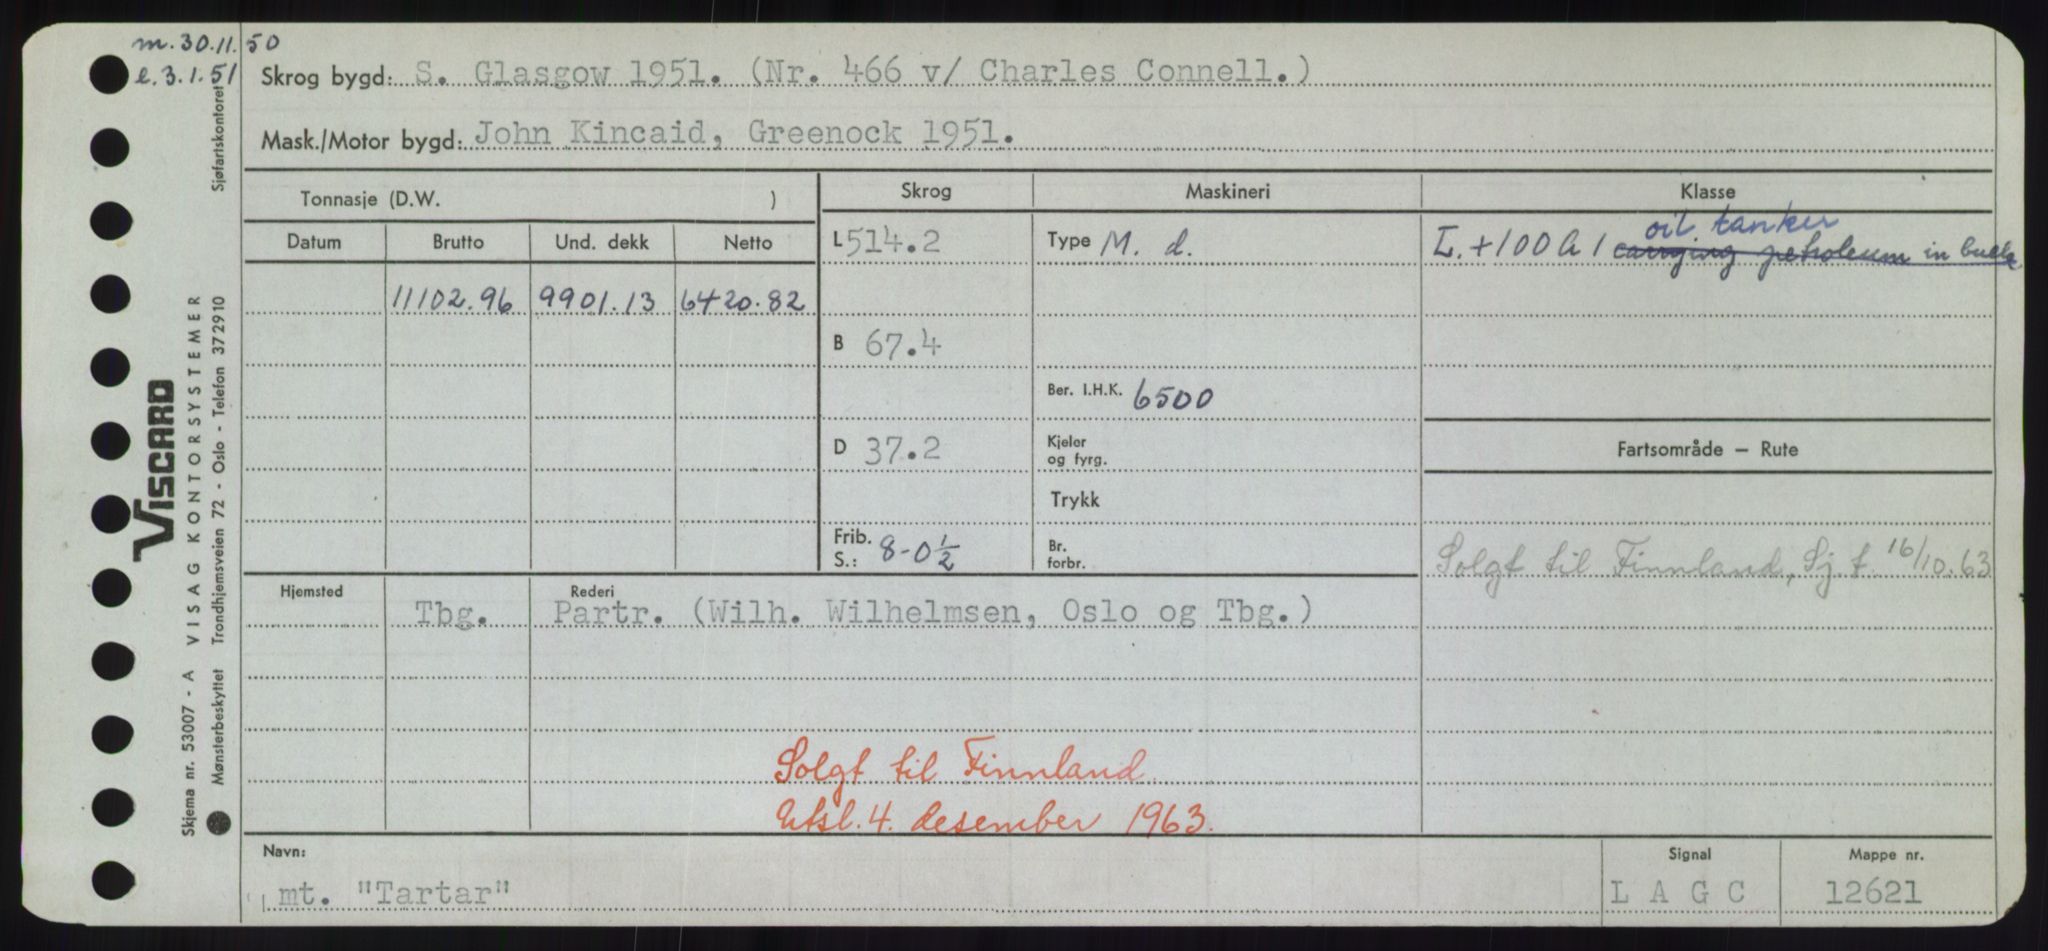 m. 30.11.50
e. 3.1.51
Skrog bygd: S. Glasgow 1951. (Nr. 466 v/ Charles Connell.)
Mask./Motor bygd: John Kincaid, Greenock 1951.
Tonnasje (D.W. )
Skrog
Maskineri
Klasse
Datum
Brutto
Und. dekk
Netto
11102.96
9901.13
6420.82
L 514.2
B 67.4
D 37.2
Frib. S.: 8-0½
Type M. d.
Ber. I.H.K. 6500
Kjeler
og fyrg.
Trykk
Br.
forbr.
oil tanker
L. +100 A 1 carrying petroleum in bulk
Fartsområde – Rute
Solgt til Finnland, Sj.f. 16/10.63
Hjemsted
Rederi
Tbg. Partr. (Wilh. Wilhelmsen, Oslo og Tbg.)
Solgt til Finnland
Utsl. 4. desember 1963.
Navn:
mt. "Tartar"
Signal
L A G C
Mappe nr.
12621
VISCARD
Skjema nr. 53007 - A VISAG KONTORSYSTEMER
Mønsterbeskyttet Trondhjemsveien 72 - Oslo - Telefon 372910 Sjøfartskontoret